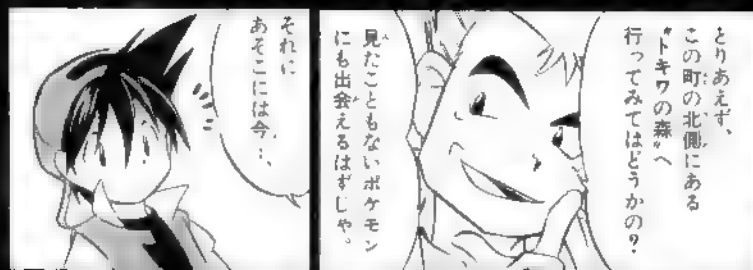 とりあえず、
この町の北側にある
"トキワの森"へ
行ってみてはどうかの?
見たこともないポケモン
にも出会えるはずじゃ。
それに
あそこには今…、